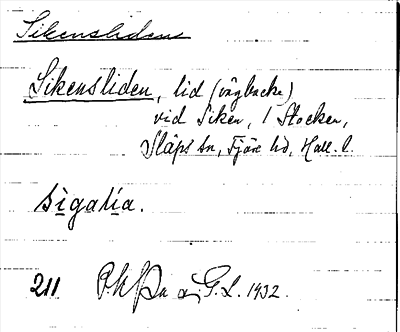 Sikensliden
Sikensliden, lid (vägbacke)
vid Siken, i Stocken,
Släps sn, Fjäre hd, Hall. l.
sìgalía.
211 av G.L. 1932.